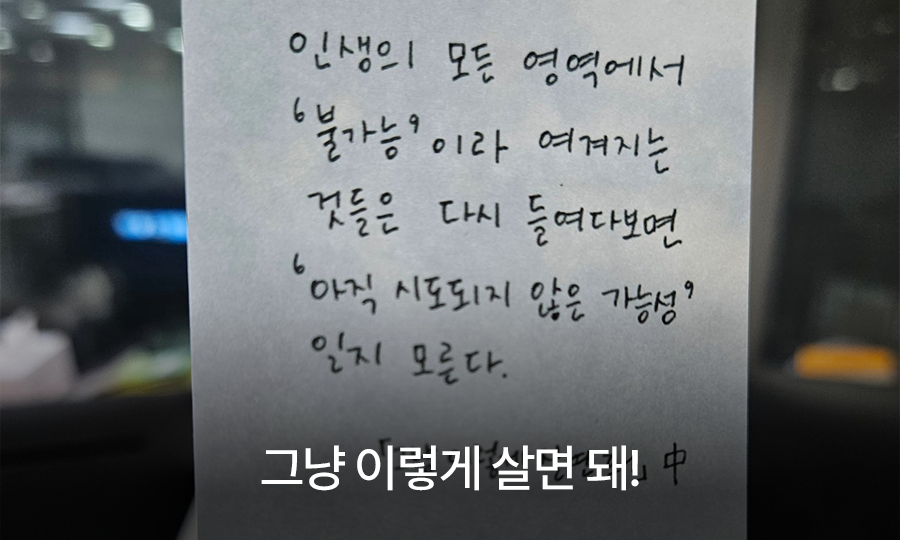 인생의 모든 영역에서
‘불가능’ 이라 여겨지는
것들은 다시 들여다보면
‘아직 시도되지 않은 가능성’
일지 모른다.
中
그냥 이렇게 살면 돼!